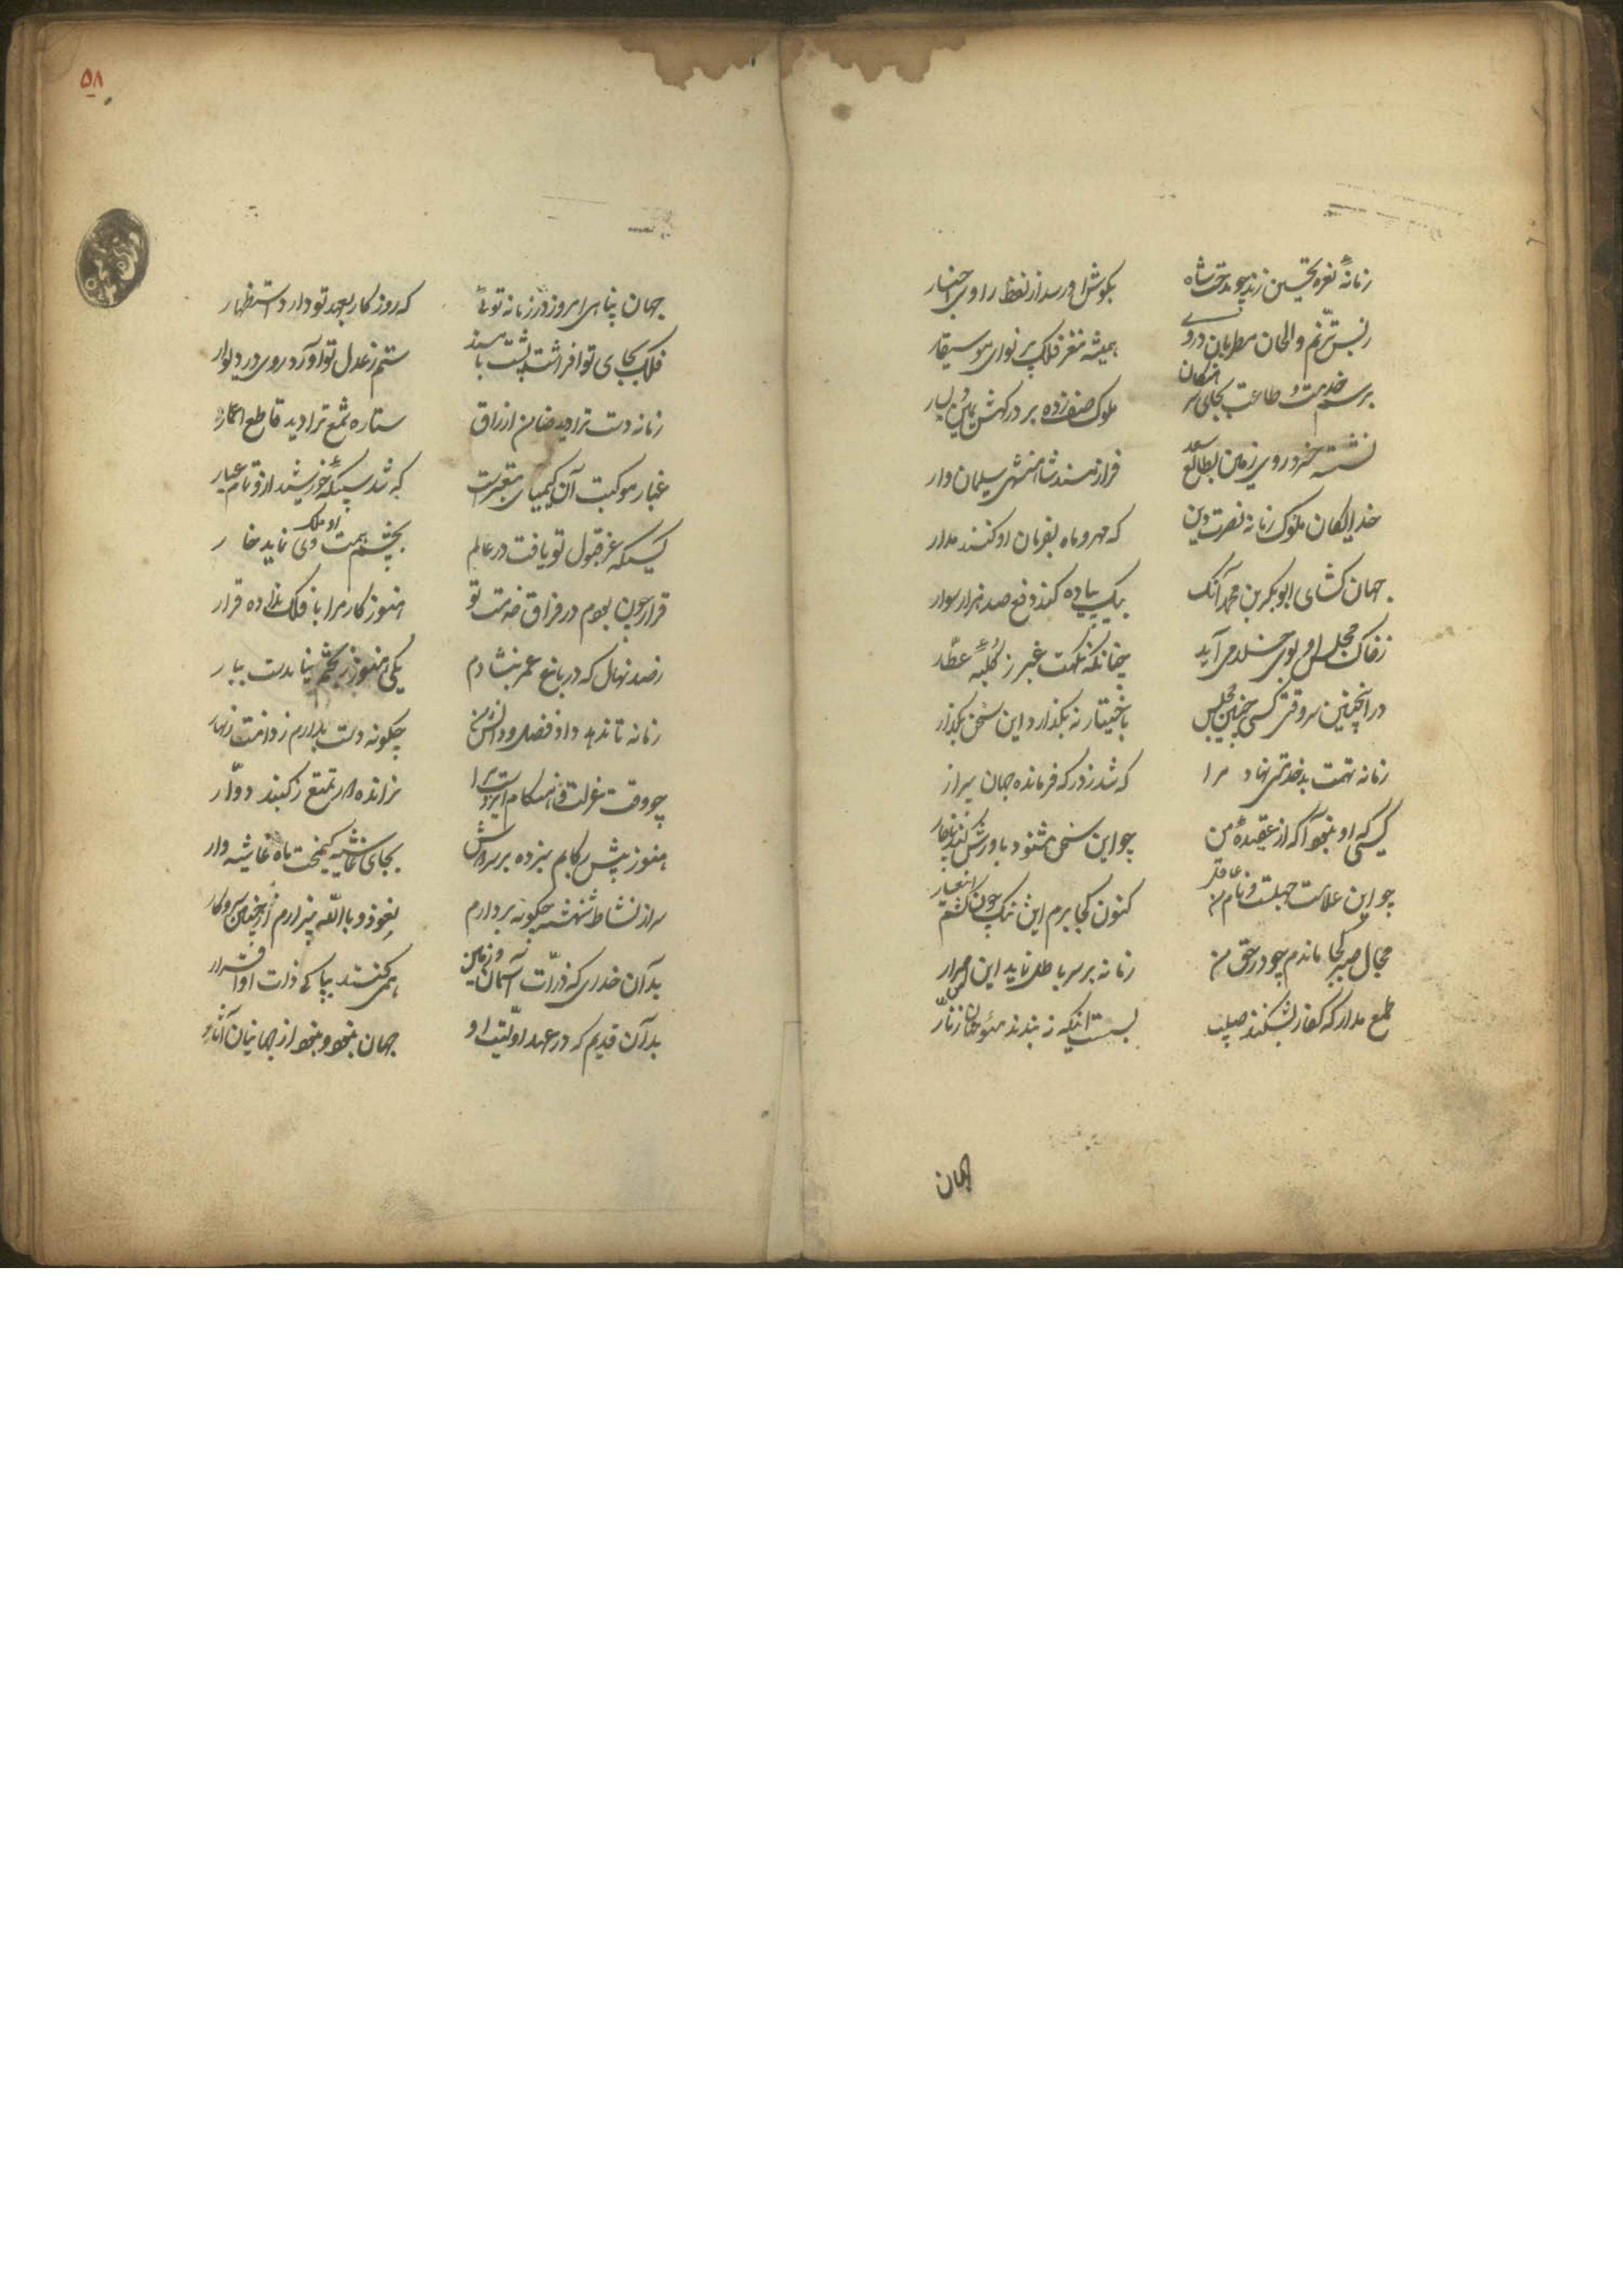 زمانه نعره تحسین زند چو مدحت شاه بگوش او رسد از لفظ راوی اخبار
ز بس ترنم و الحان مطربان در وی همیشه مغز فلک پر نوای موسیقار
برسم خدمت و طاعت بجای ملوک صف زده بر درگهش یمین و یسار
نشسته خسرو روی زمین بطالع سعد فراز مسند شاهنشهی سلیمان وار
خدایگان ملوک زمانه نصرت دین که مهر و ماه بفرمان او کنند مدار
جهان کشای ابوبکر بن محمد آنک بیک پیاده کند دفع صد هزار سوار
ز خاک مجلس او بوی خلد می آید چنانکه نکهت عنبر ز کلبه عطار
در اینچنین سر وقتی کسی چنین مجلس باختیار نه بگذارد این سخن بگذار
زمانه تهمت بدخدمتی نهاد مرا که شد ز درگه فرمانده جهان بیزار
کسی که او بود آگه از عقیده من چو این سخن شنود باورش کند
چو این علامت جهلست و نام من عاقل کنون کجا برم این ننگ چون کشم این عار
مجال صبر کجا ماندم چو در حق من زمانه بر سر باطل نماید این اصرار
طمع مدار که کفار بشکنند صلیب بست اینکه نه بندند مؤمنان زنار
جهان
۵۸
جهان پناهی امروز در زمانه توئی که روزگار بعهد تو دارد استظهار
فلک بجای تو افراشت پشت با مسند ستم ز عدل تو آورد روی در دیوار
زمانه دست ترا دید ضامن ارزاق ستاره تیغ ترا دید قاطع اعمار
غبار موکبت آن کیمیای معتبرست که شد سبیکه خورشید ازو تمام عیار
کسیکه عز قبول تو یافت در عالم بچشم همت او ملک دی نماید خار
قرار چون بودم در فراق خدمت تو هنوز کار مرا با فلک نداده قرار
ز صد نهال که در باغ عمر بنشاندم یکی هنوز بچشم نیامدست ببار
زمانه تا ندهد داد فضل و دانش من چگونه دست بدارم ز دامنت زنهار
چو وقت عزلت و هنگام انزواست مرا نرانده کام تمتع ز گنبد دوار
هنوز پیش رکابم نبرده بر سر دوش بجای غاشیه کیمخت ماه غاشیه دار
سر از نشاط شهنشه چگونه بردارم نعوذ و بالله بیزارم از چنین سر و کار
بدان خدای که ذرات آسمان و زمین همی کنند بپاکی ذات او اقرار
بدان قدیم که در عهد اولیت او جهان نبود و نبود از جهانیان آثار